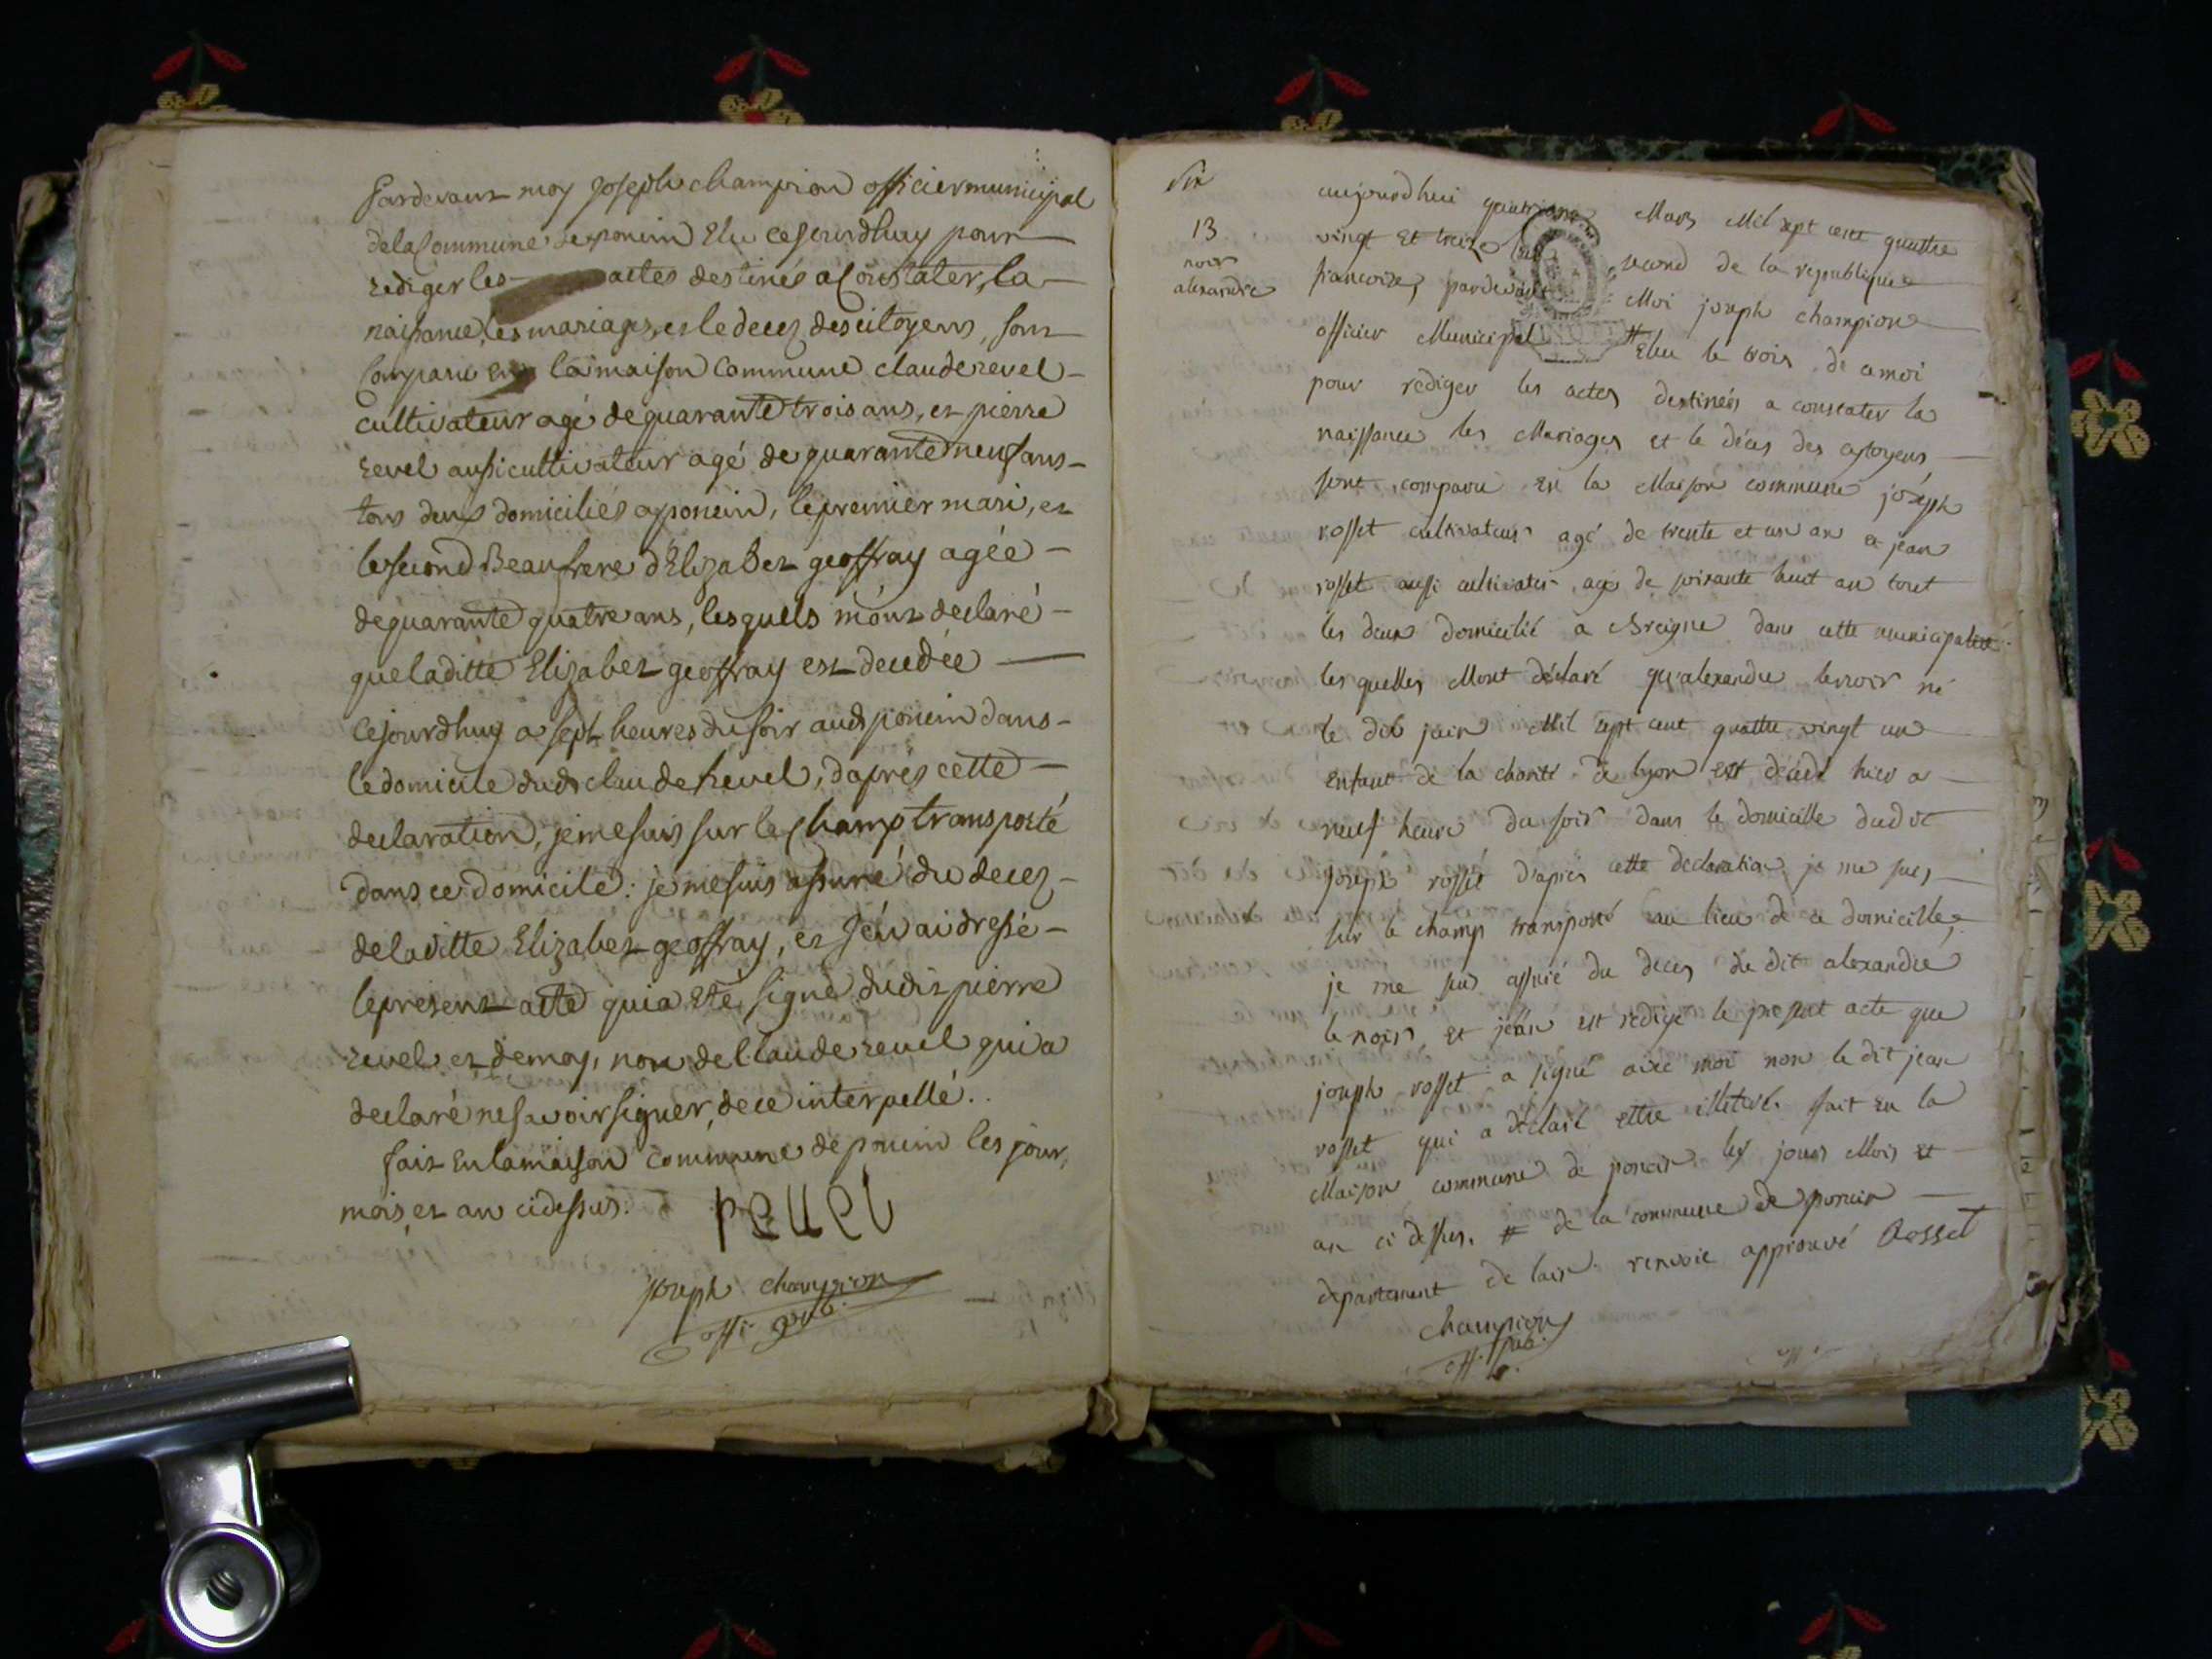 pardevant moy Joseph champion officier municipal
de la Commune de poncin Elu cejourdhuy pour
rediger les actes destinés a Constater, la
naissance, les mariages, et le decez des citoyens, sont
Comparu en la maison Commune claude revel
cultivateur agé de quarante trois ans, et pierre
revel aussi cultivateur agé de quarante neuf ans
tous deux domiciliés a poncin, le premier mari, et
le second Beaufrere d'Elizabet geoffray agée
de quarante quatre ans, lesquels m'ont declaré
que laditte Elizabet geoffray est decedée
cejourdhuy a sept heures du soir aud. poncin dans
le domicile dudt claude Revel, d'après cette
declaration, je me suis sur le Champ transporté
dans ce domicile: je me suis assuré du decez
de laditte Elizabet geoffray, et j'en ai dressé
le present acte qui a Eté signé dudit pierre
revel et de moy, non de Claude revel qui a
declaré ne savoir signer, de ce interpellé..
fait en la maison Commune de poncin les jour,
mois, et an cidessus.
revel
joseph champion
offi. pub.
Six
13
noir
alexandre
aujourdhui quatrieme Mars Mil sept cent quattre
vingt et treize second de la republique
francoize, pardevant Moi joseph champion
officier Municipal # Elue le trois de ce moi
pour rediger les actes destinés a constater la
naissance les Mariages et le déces des cytoyens
sont comparu en la Maison commune joseph
rosset cultivateur agé de trente et un an et jean
rosset aussi cultivateur agé de soixante huit an tout
les deux domicilié a Breigne dans cette municipalité
lesquelles M'ont déclaré qu'alexandre lenoir né
le dix juin Mil sept cent quattre vingt un
enfant de la charité de lyon est décédé hier a
neuf heure du soir dans le domicille dudit
joseph rosset d'apres cette declaration je me suis
sur le champ transporté au lieu de ce domicille,
je me suis assuré du deces du dit alexandre
lenoir et j'en est redigé le present acte que
joseph rosset a signé avec moi non le dit jean
rosset qui a déclaré ettre illiteré. fait en la
Maison commune de poncin les jours Mois et
an ci dessus. # de la commune de poncin
departement de lain. renvoie approuvé Rosset
champion
off. pub.